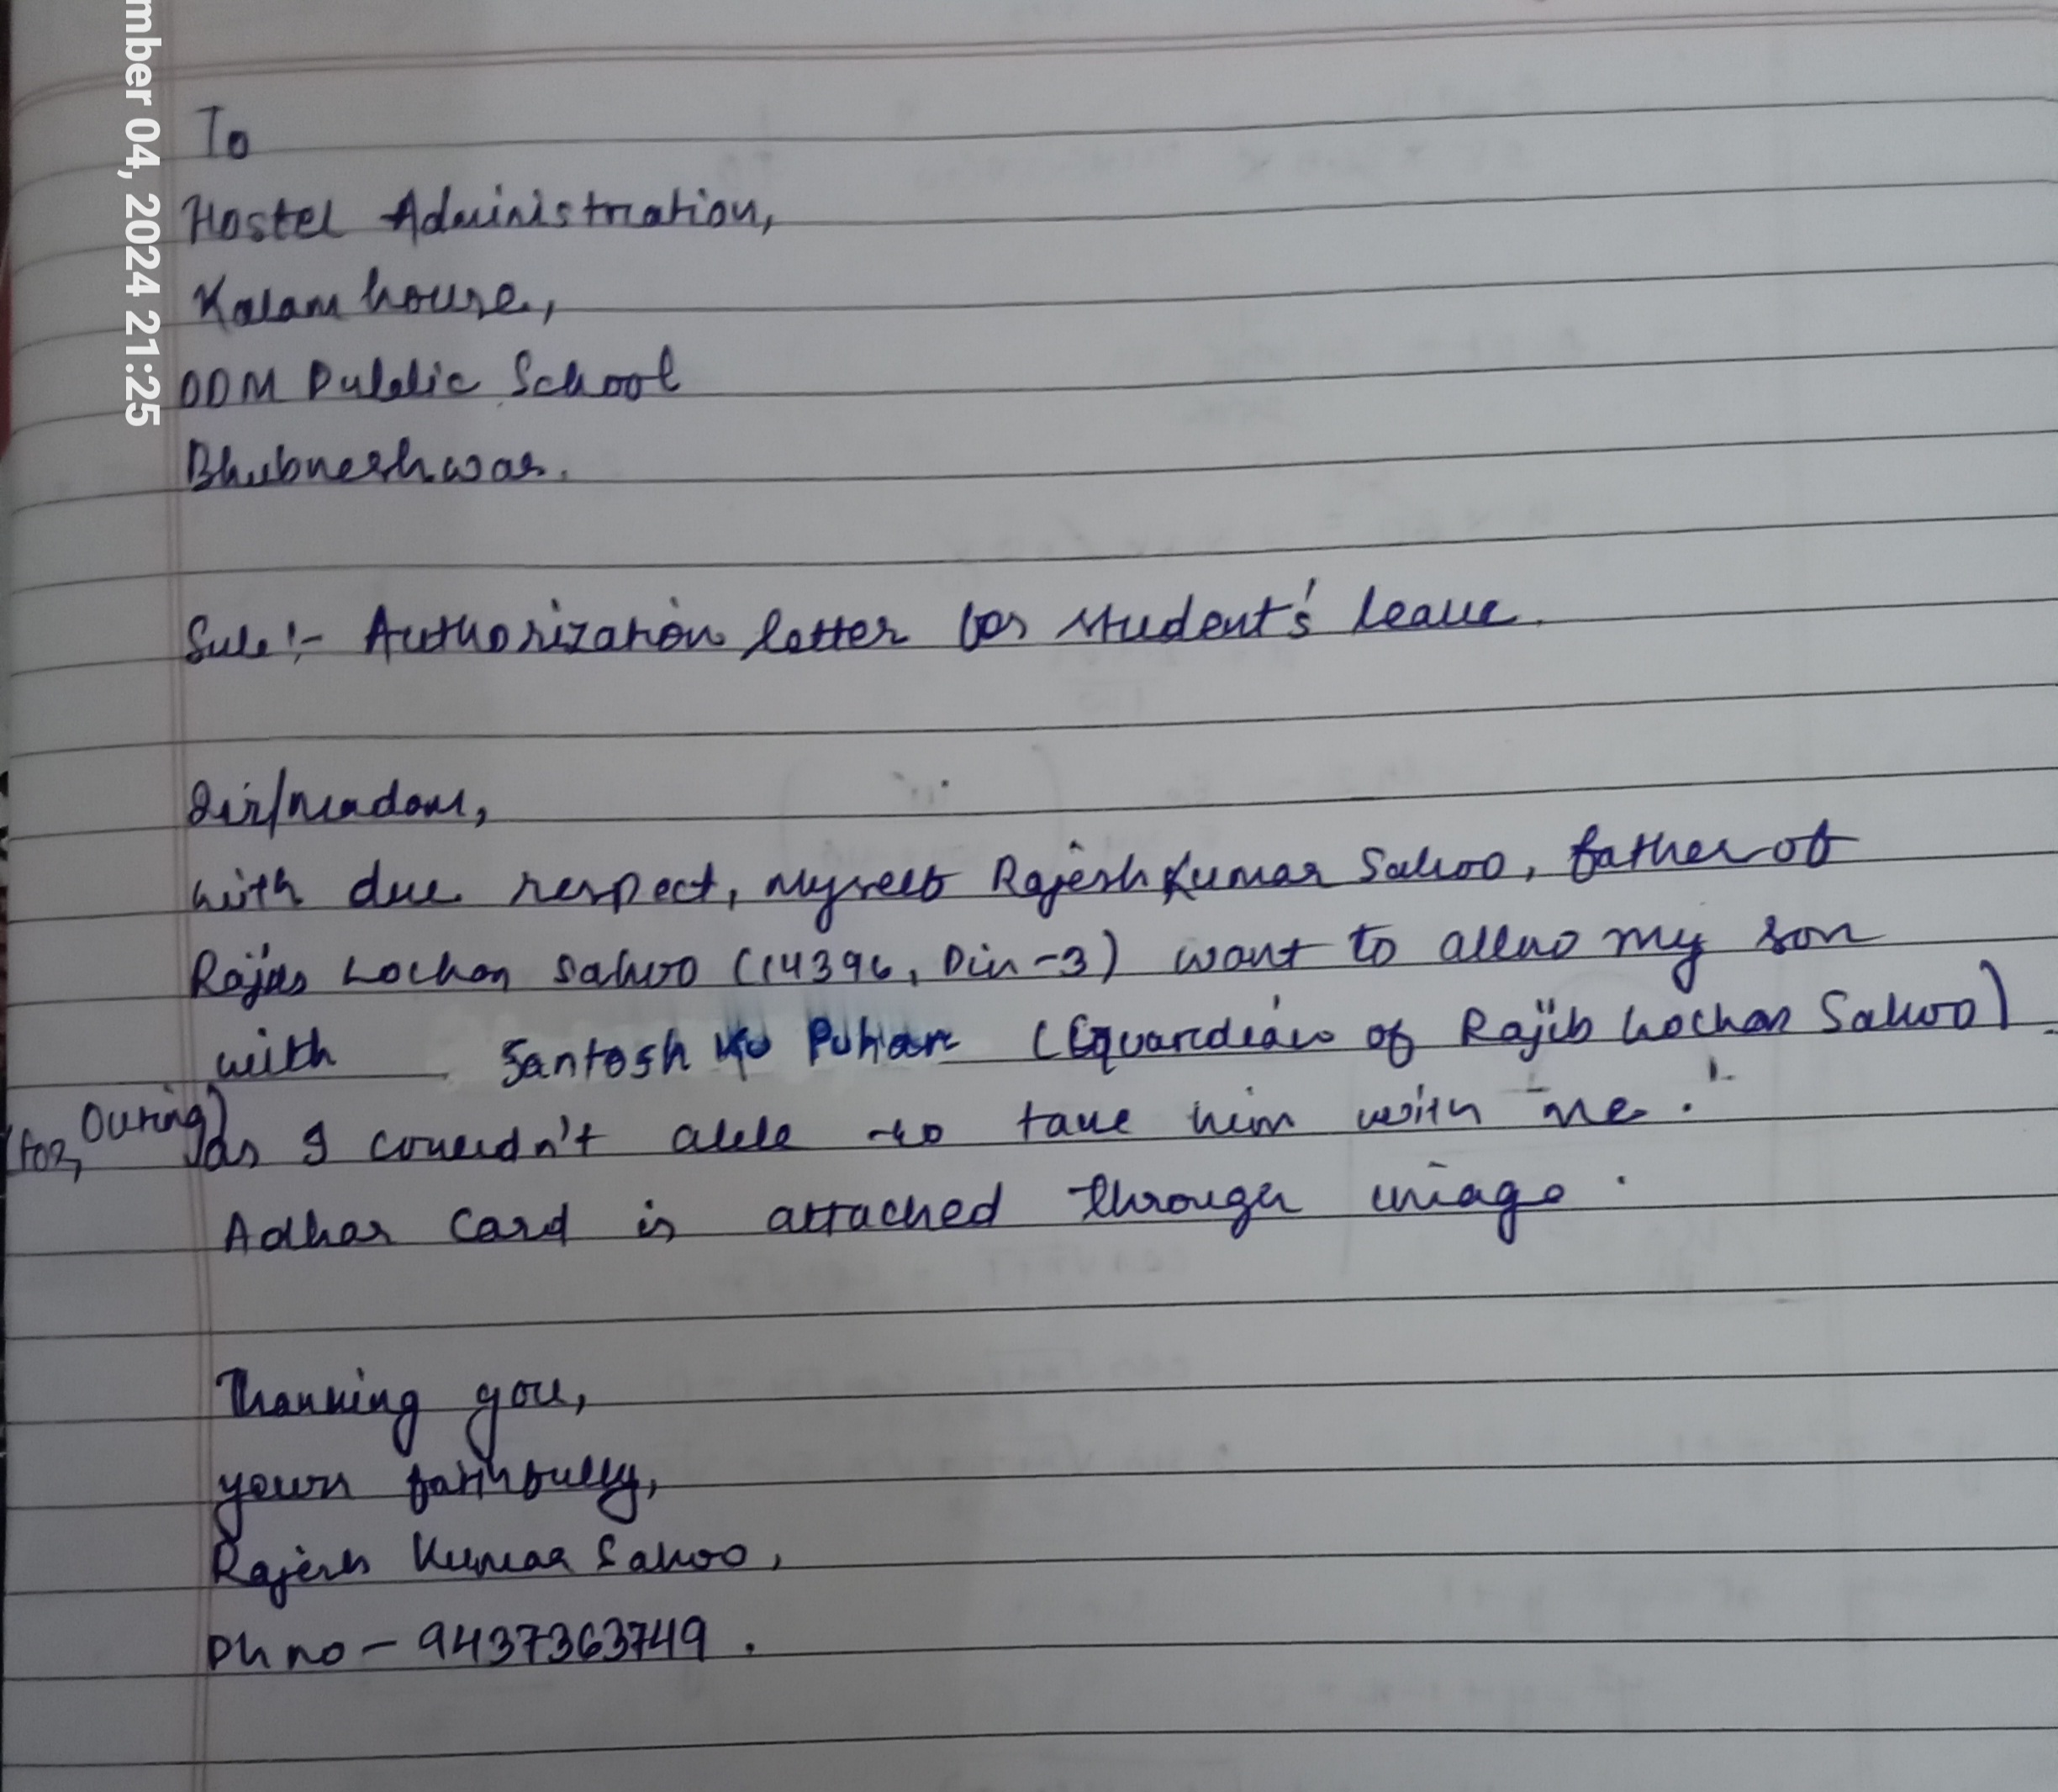 mber 04, 2024 21:25
To
Hostel Administration,
Kalam house,
ODM Public School
Bhubneshwar.
Sub:- Authorization letter for student's leave.
Sir/madam,
with due respect, myself Rajesh Kumar Sahoo, father of
Lochan Sahoo (14396, Div-3) want to allow my son
with Santosh Ku Puhan (Guardian of Rajib Lochan Sahoo)
(for, During) as I couldn't able to take him with me.
Adhar Card is attached through image.
Thanking you,
yours faithfully,
Rajesh Kumar Sahoo,
Ph no - 9437363749.